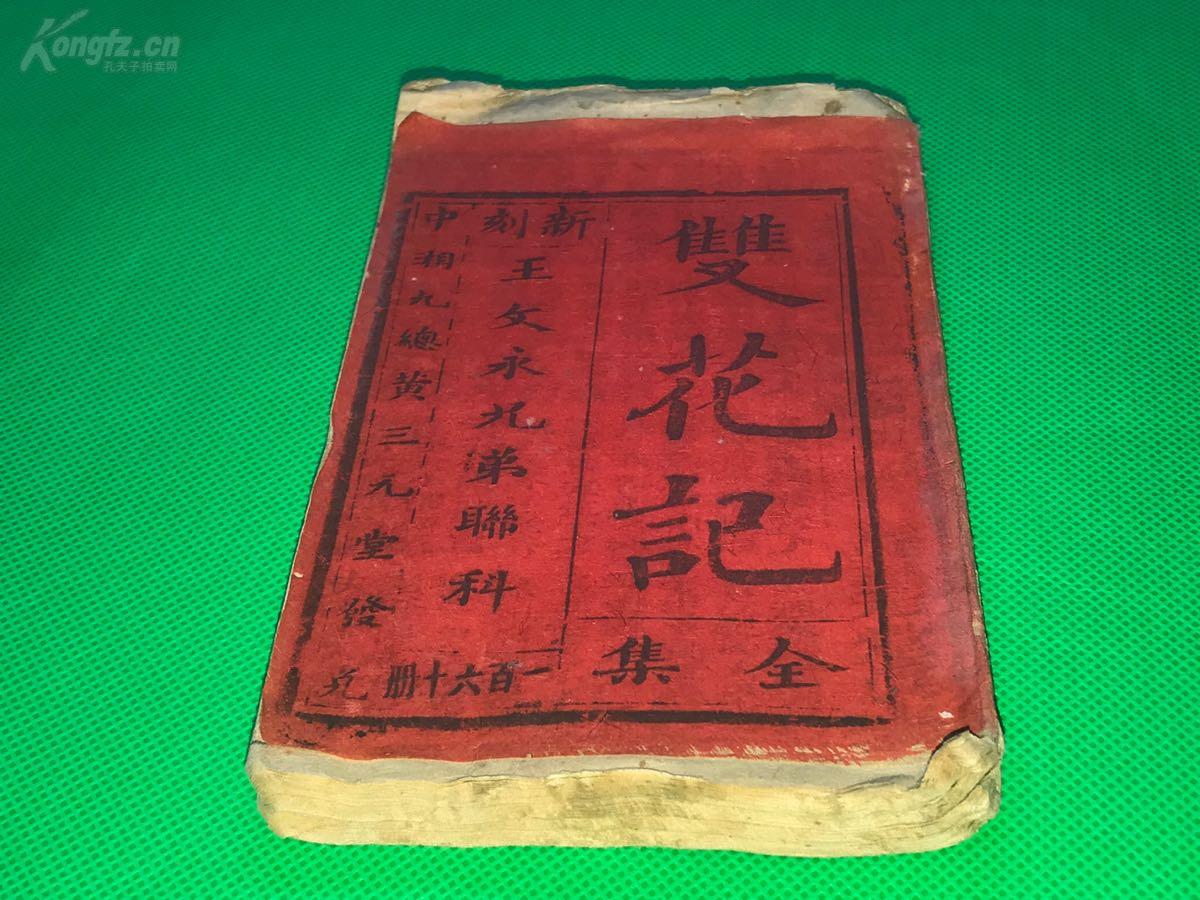 Kongfz.cn
孔夫子拍卖网
雙花記
全集
新刻
王文永兄弟聯科
一百六十冊
中湘九總黄三元堂發兑